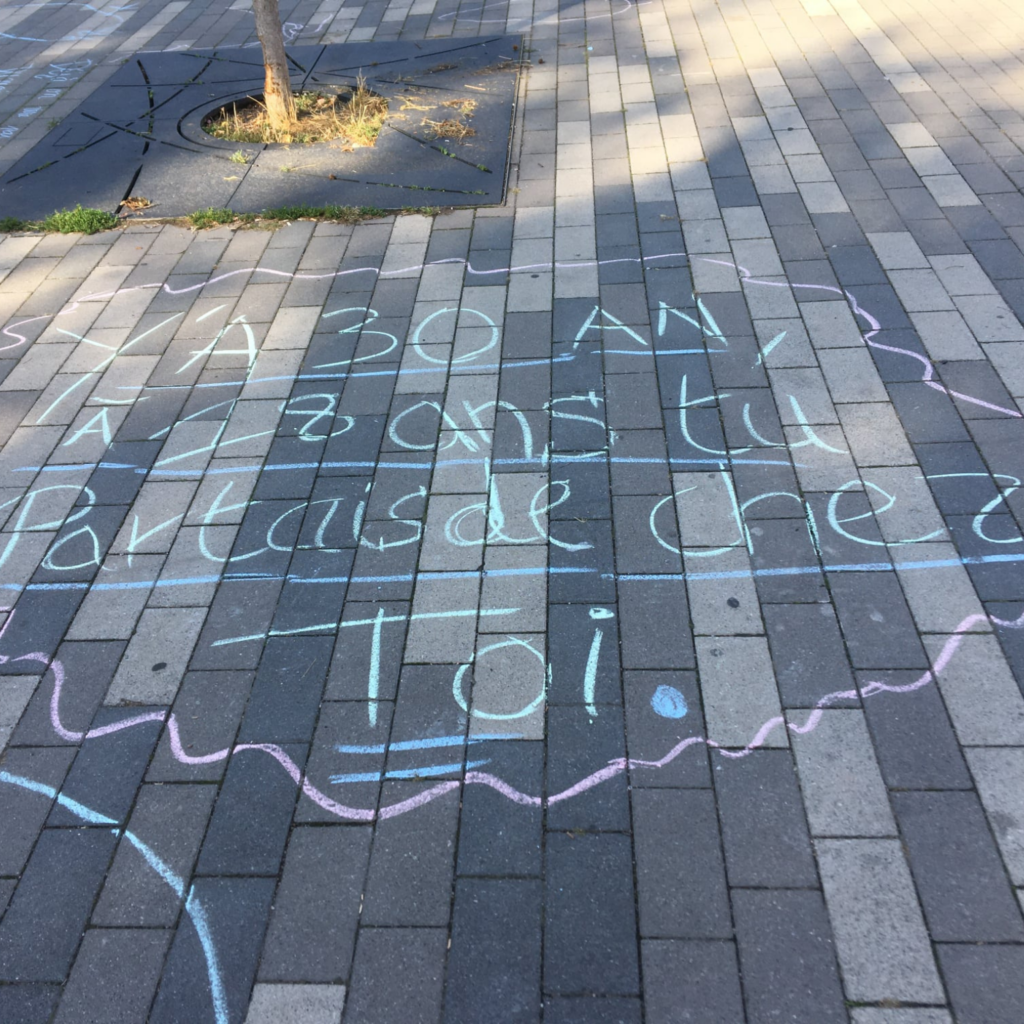 Y'A 30 AN,
À 28 ans tu
Partais de chez
Toi.